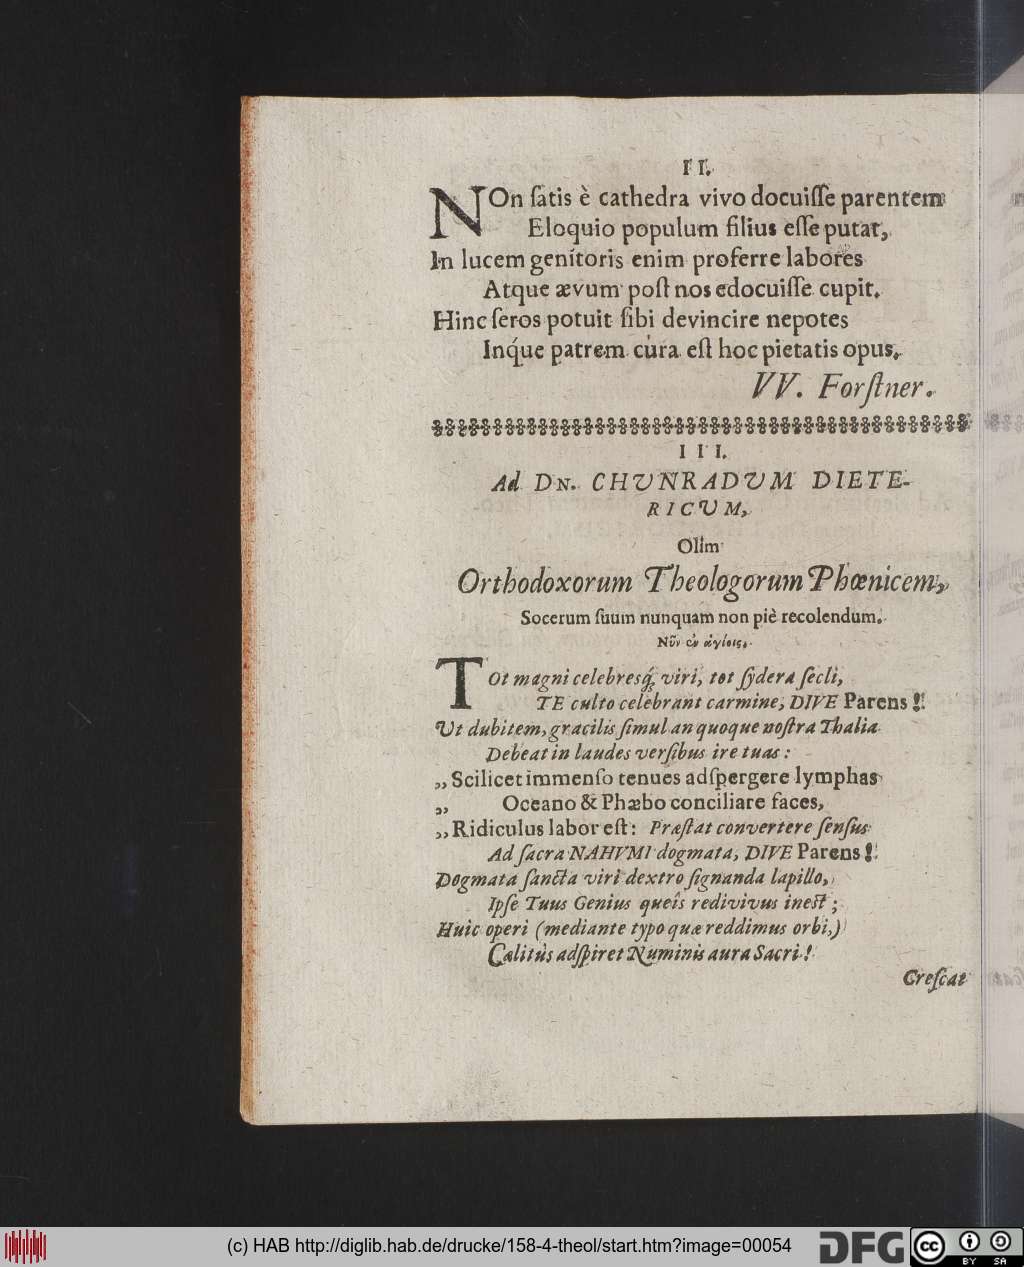 II.
NOn ſatis è cathedra vivo docuiſſe parentem
Eloquio populum filius eſſe putat,
In lucem genitoris enim proferre labores
Atque ævum poſt nos edocuiſſe cupit.
Hinc ſeros potuit ſibi devincire nepotes
Inq́ue patrem cura eſt hoc pietatis opus.
VV. Forſtner.
III.
Ad DN. CHUNRADUM DIETE-
RICUM,
Olim
Orthodoxorum Theologorum Phœnicem,
Socerum ſuum nunquam non piè recolendum.
Νῦν ἐν ἁγίοις.
TOt magni celebresq́; viri, tot ſydera ſecli,
TE culto celebrant carmine, DIVE Parens!
Ut dubitem, gracilis ſimul an quoque noſtra Thalia
Debeat in laudes verſibus ire tuas:
„Scilicet immenſo tenues adſpergere lymphas
„ Oceano & Phæbo conciliare faces,
„Ridiculus labor eſt: Præſtat convertere ſenſus
Ad ſacra NAHVMI dogmata, DIVE Parens!
Dogmata ſancta viri dextro ſignanda lapillo,
Ipſe Tuus Genius queîs redivivus ineſt;
Huic operi (mediante typo quæ reddimus orbi,)
Cælitùs adſpiret Numinis aura Sacri!
Creſcat
(c) HAB http://diglib.hab.de/drucke/158-4-theol/start.htm?image=00054
DFG
cc
BY SA